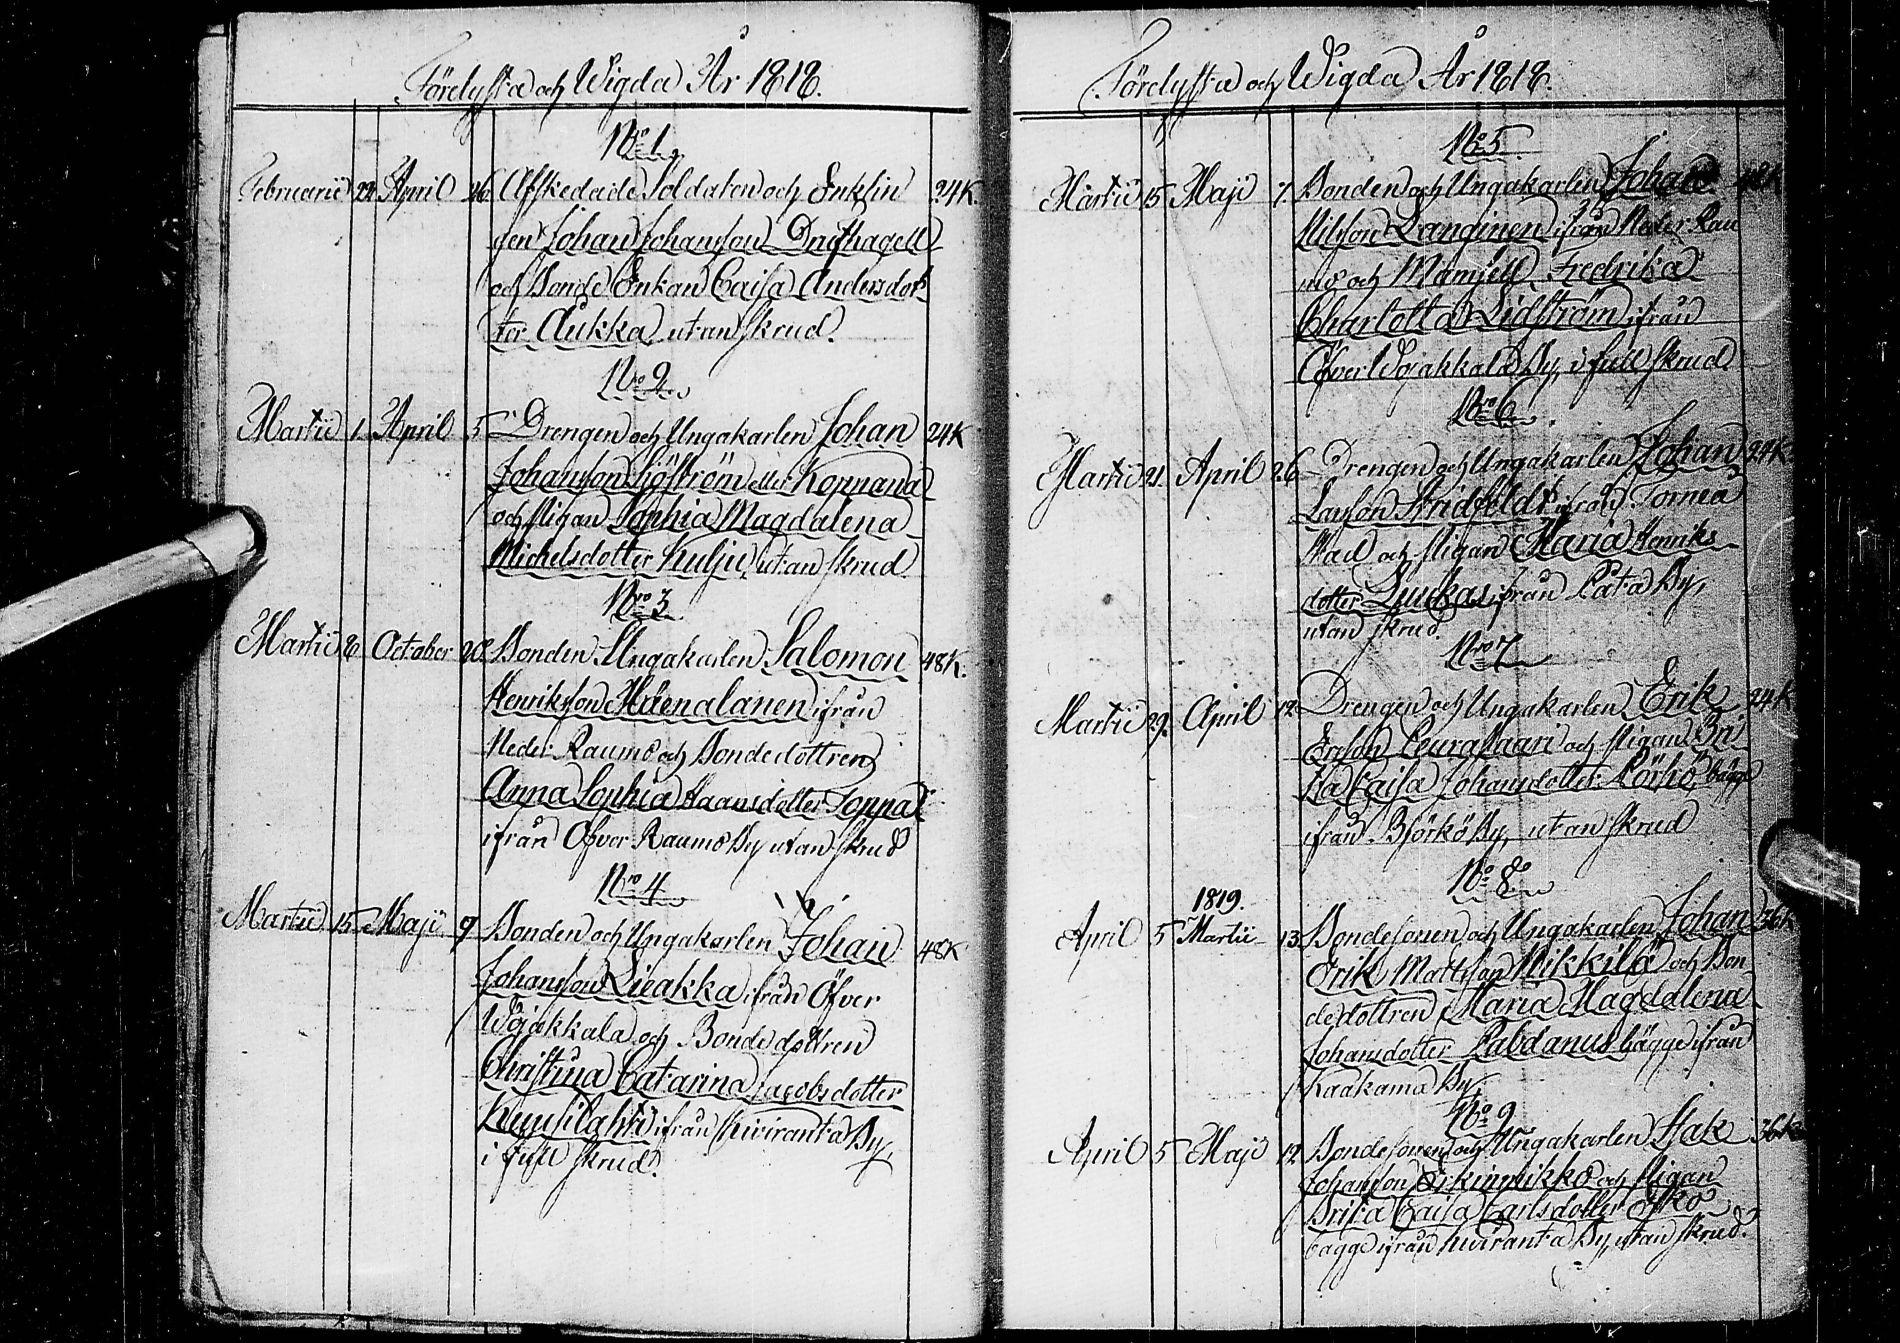 Förelysta och Wigda År 1818.
No 1.
Februarii 22 April 26. Afskedade Soldaten och Enklin 24K.
gen Johan Johansson
och Bonde Enkan Caisa Andersdot
ter Aukka utan skrud.
No 2.
Martii 1. April 5. Drengen och Ungakarlen Johan 24K
Johansson Sjöström eller Koppana
och Pigan Sophia Magdalena
Michelsdotter Kulju, utan skrud
No 3
Martii 8. October 20. Bonden Ungakarlen Salomon 48K.
Henriksson ifrån
Neder Raumo och Bondedottren
Anna Sophia
ifrån Öfver Raumo By utan skrud
No 4
Martii 15 Maji 7 Bonden och Ungakarlen Johan 48K
Johansson Lieakka ifrån Öfver
Wojakkala och Bondedottren
Christina Catarina Jacobsdotter
ifrån Kuiranta By,
i full skrud.
Förelysta och Wigda År 1818.
No 5
Martii 15 Maji 7. Bonden och Ungakarlen Johan 48K
Nilsson ifrån Neder Rau
mo och Mamsell Fredrika
Charlotta Lidström ifrån
Öfver Wojakkala By, i full skrud.
No 6
Martii 21. April 26 Drengen och Ungakarlen Johan 24K.
Larsson Stridfeldt ifrån Torneå
Stad och Pigan Maria Henriks
dotter Luukas ifrån Pata By,
utan skrud.
No 7
Martii 29. April 12. Drengen och Ungakarlen Erik 24K
Ersson Leurasaari och Pigan Bri
ta Caisa Johansdotter Pörhö bägge
ifrån Björkö By, utan skrud
No 8.
1819.
April 5 Martii 13. Bondesonen och Ungakarlen Johan 36K
Erik Mattsson Nikkilä och Bon
dedottren Maria Magdalena
Johansdotter Labdanus bägge ifrån
Kaakama By.
No 9
April 5 Maji 12. Bondesonen och Ungakarlen Isak 36K
Johansson och Pigan
Brita Caisa Carlsdotter
bägge ifrån Kuiranta By, utan skrud.